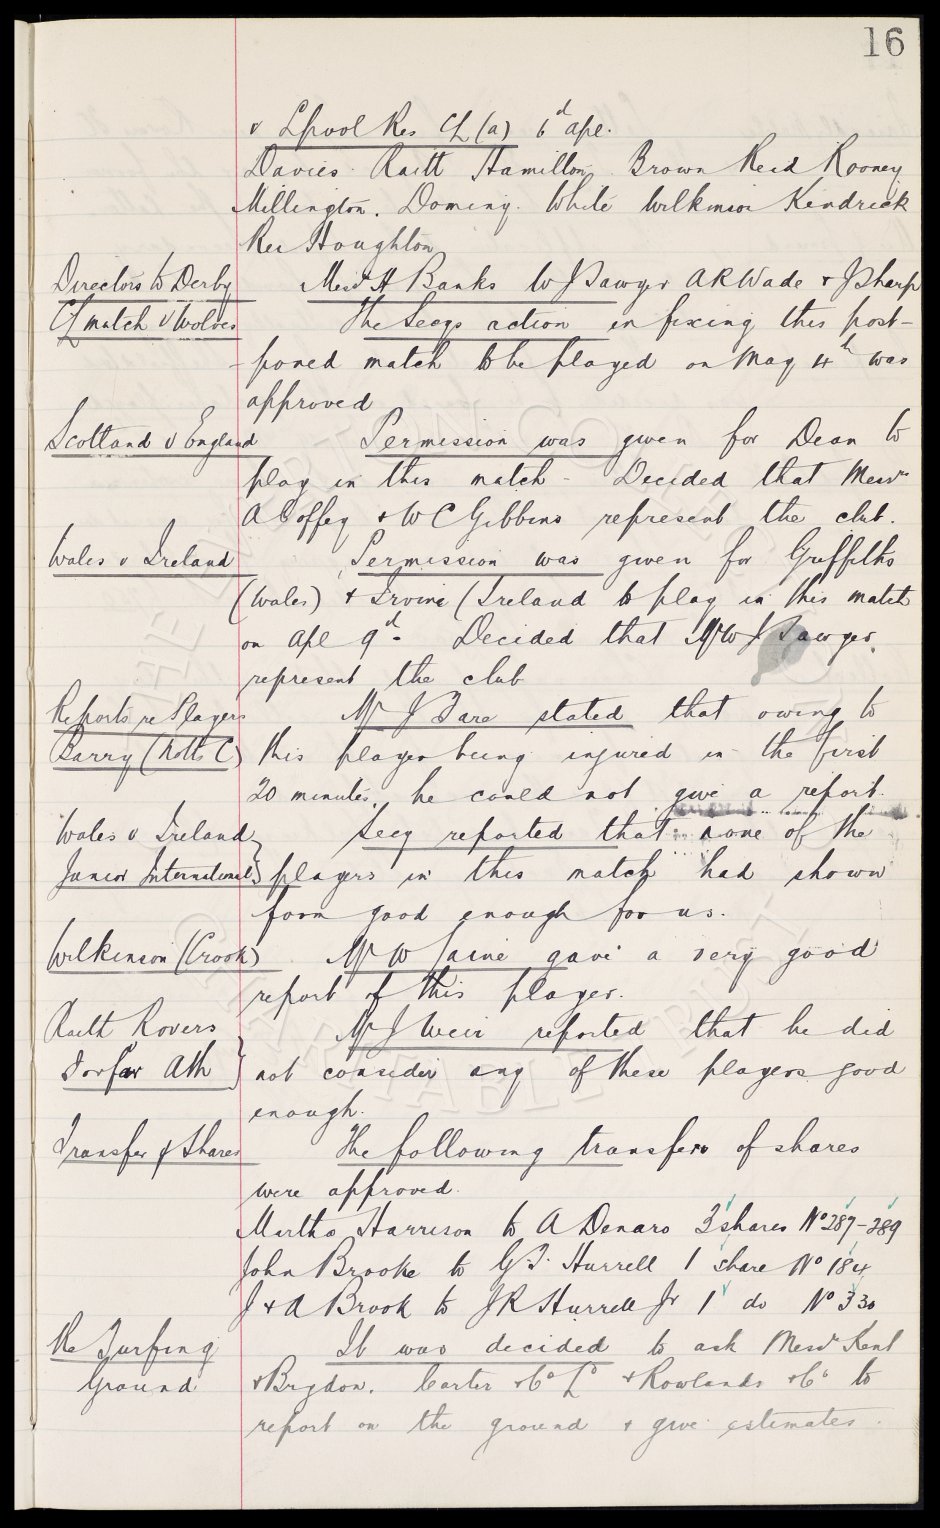 16
v Lpool Res CL (a) 6d apl.
Davies Raitt Hamilton Brown Reid Rooney
Millington. Doming. White Wilkinson Kendrick
Res Houghton
Directors to Derby Messrs H Banks W J Sawyer A R Wade & J Sharp
CL match v Wolves The Secys action in fixing this post-
poned match to be played on May 4th was
approved
Scotland v England Permission was given for Dean to
play in this match - Decided that Messrs
A Coffey & W C Gibbins represent the club.
Wales v Ireland Permission was given for Griffiths
(Wales) & Irvine (Ireland to play in this match
on Apl 9d - Decided that Mr W J Sawyer
represent the club
Reports re Players Mr J Fare stated that owing to
Barry (Notts C) this player being injured in the first
20 minutes, he could not give a report.
Wales v Ireland Secy reported that none of the
Junior International players in this match had shown
form good enough for us.
Wilkinson (Crook) Mr W Jaine gave a very good
report of this player.
Raith Rovers Mr J Weir reported that he did
Forfar Ath not consider any of these players good
enough.
Transfer of Shares The following transfers of shares
were approved.
Martha Harrison to A Denaro 3 shares No 287-289
John Brooke to G. F. Hurrell 1 share No 184
J & A Brook to J R Hurrell Jr 1 do No 330
Re Turfing It was decided to ask Messrs Kent
Ground & Brydon, Carter & Co Ld & Rowlands & Co to
report on the ground & give estimates.